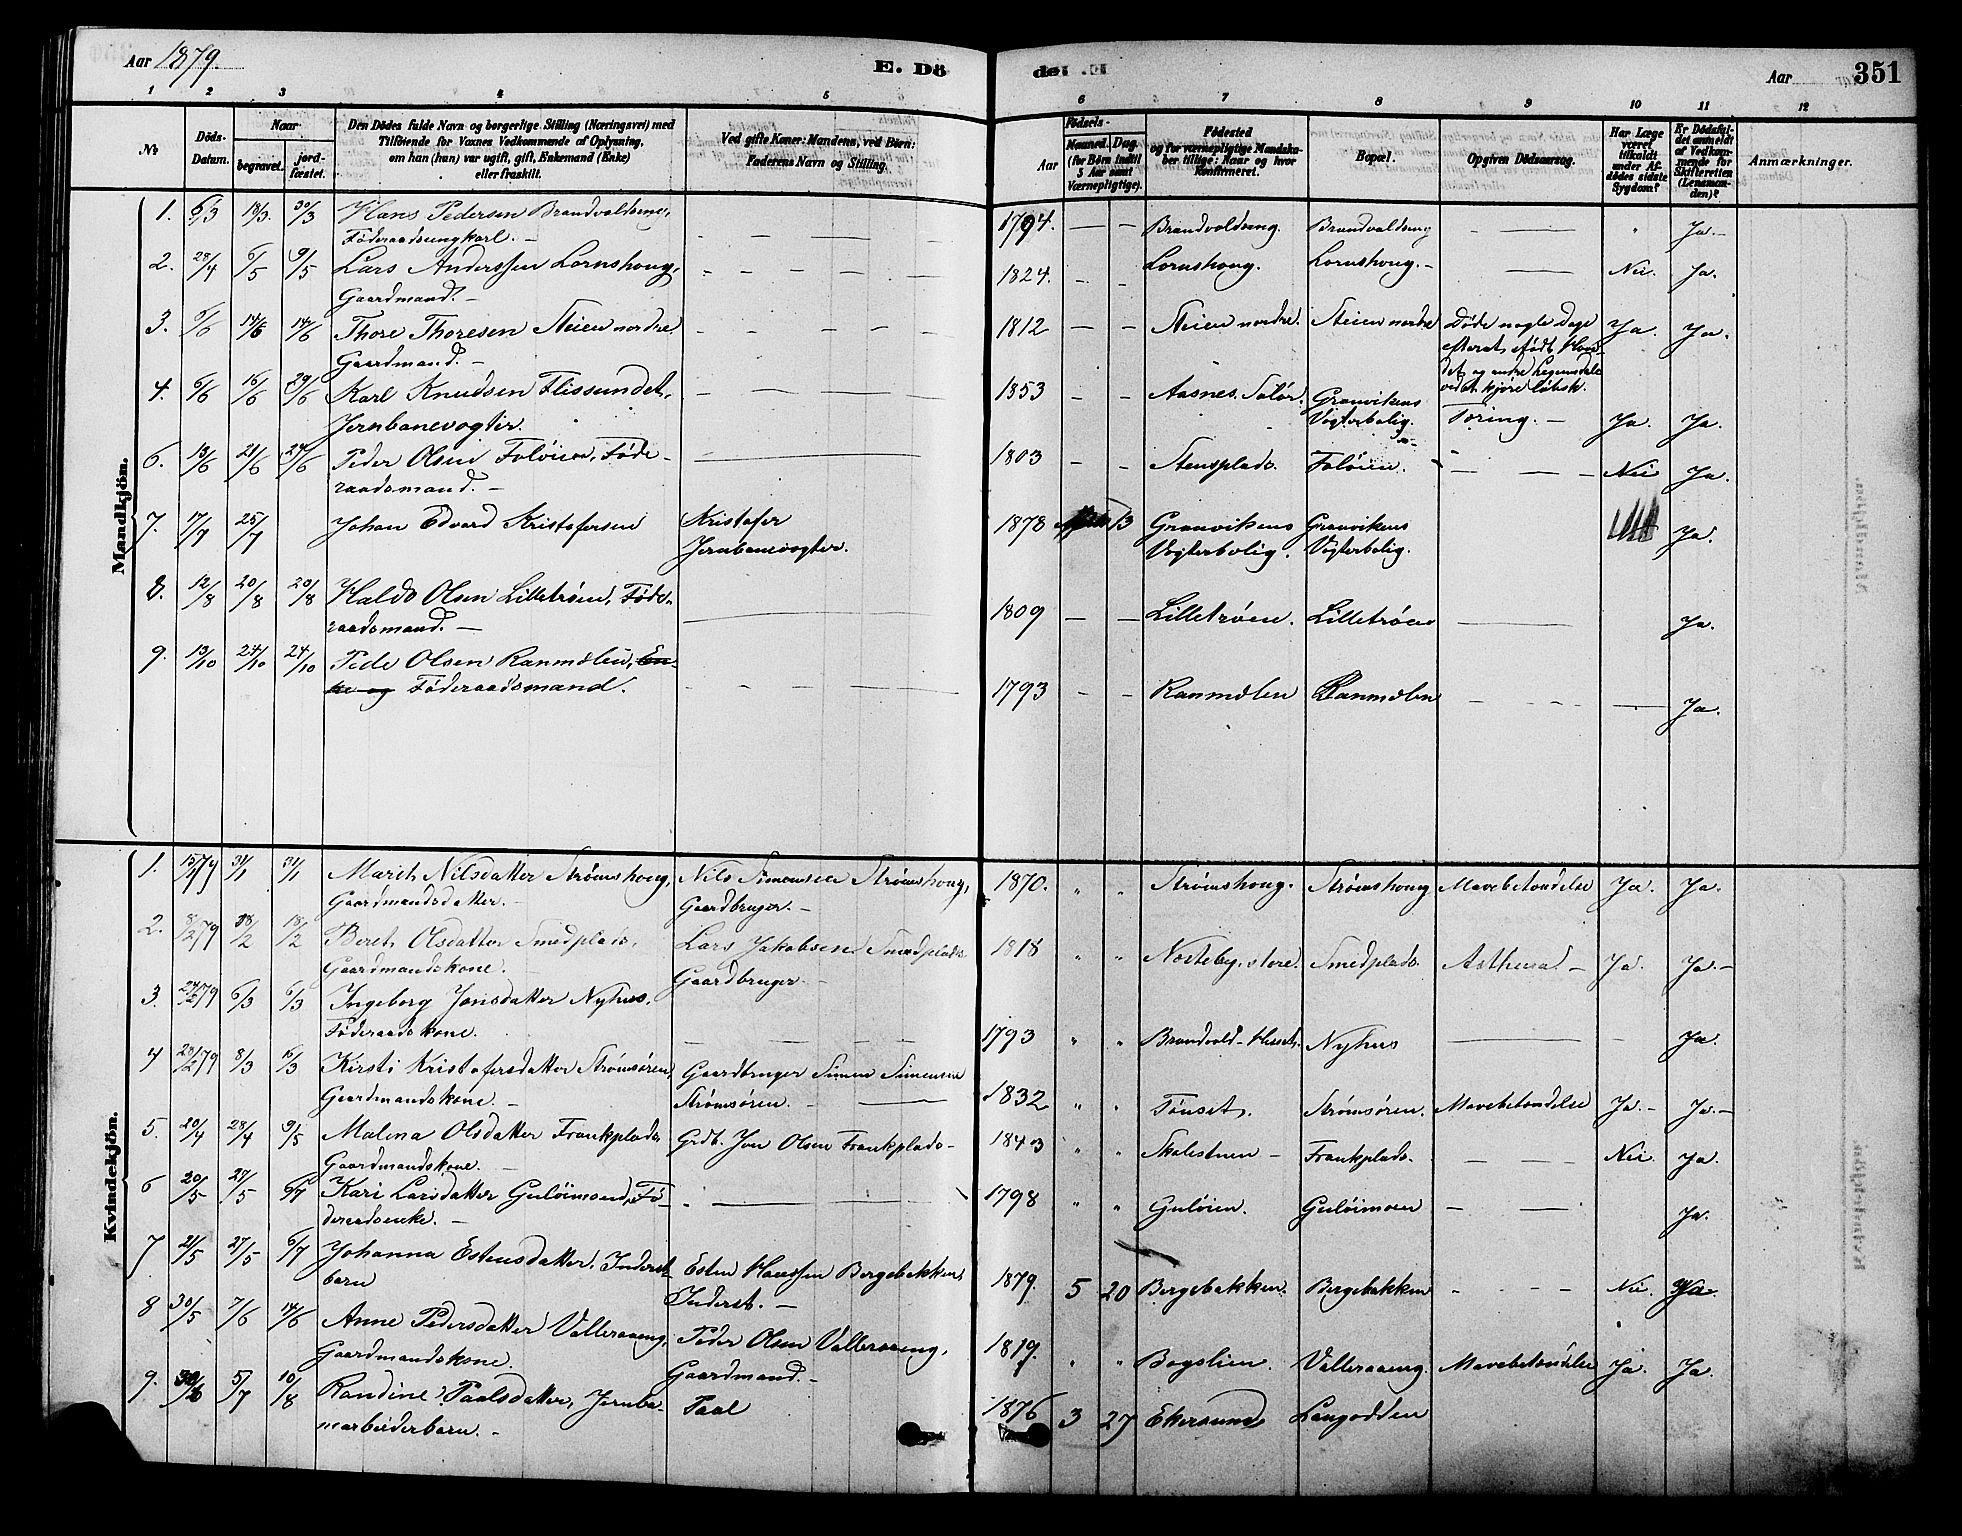 Aar 1879.
E. Dö
1 2 3 4 5
№
Döds-Datum.
Naar
begravet.
jord-fæstet.
Den Dödes fulde Navn og borgerlige Stilling (Næringsvei) med
Tilföiende for Voxnes Vedkommende af Oplysning,
om han (hun) var ugift, gift, Enkemand (Enke)
eller fraskilt.
Ved gifte Koner: Mandens, ved Börn:
Faderens Navn og Stilling.
Mandkjön.
1. 6/3 18/3 30/3 Hans Pedersen Brandvoldseng,
Föderaadsungkarl. —
2. 28/4 6/5 9/5 Lars Anderssen Lornshoug,
Gaardmand. —
3. 6/6 14/6 14/6 Thore Thoresen Steien nordre
Gaardmand. —
4. 6/6 16/6 29/6 Karl Knudsen Flissundet,
Jernbanevogter.
6. 18/6 21/6 24/6 Peder Olsen Foløien, Føde-
raadsmand. —
7. 17/7 25/7 Johan Edvard Kristofersen Kristofer
Jernbanevogter.
8. 12/8 20/8 20/8 Haldo Olsen Lilletrøen, Føde-
raadsmand. —
9. 13/10 24/10 24/10 Pede Olsen Ranmælen, En-
ke og Føderaadsmand.
Kvindekjön.
1. 15/1 79 31/1 31/1 Marit Nilsdatter Strømshoug, Nils Simensen Strømshoug,
Gaardmandsdatter. — Gaardbruger. —
2. 8/2 79 18/2 18/2 Beret Olsdatter Smedplads, Lars Jakobsen Smedplads
Gaardmandskone. — Gaardbruger. —
3. 24/2 79 6/3 6/3 Ingeborg Jonsdatter Nyhus,
Føderaadskone.
4 28/2 79 8/3 16/3 Kirsti Kristofersdatter Strømsøren, Gaardbruger Simen Simensen
Gaardmandskone — Strømsøren. —
5. 20/4 28/4 9/5 Malena Olsdatter Frankplads Grdb. Jon Olsen Frankplads-
Gaardmandskone. —
6 20/5 27/5 6/7 Kari Larsdatter Guløimoend, Fø-
deraadsenke. —
7 21/5 27/5 6/7 Johanna Estensdatter, Inderst- Esten Hanssen Bergebakken,
barn Inderst. —
8 30/5 7/6 14/6 Anne Pedersdatter Valleraaeng, Peder Olsen Valleraaeng,
Gaardmandskone. Gaardmand. —
9. 5/7 10/8 Randine Paalsdatter, Jernba- Paal
narbeiderbarn. —
de. E.
Aar 351
6 7 8 9 10 11 12
Födsels-
Aar
Maaned. Dag.
(for Börn indtil
5 Aar samt
Værnepligtige).
Födested
og for værnepligtige Mandska-
ber tillige: Naar og hvor
konfirmeret.
Bopæl.
Opgiven Dödsaarsag.
Har Læge
været
tilkaldt
under Af-
dödes sidste
Sygdom?
Er Dödsfal-
det anmeldt
af Vedkom-
mende for
Skifteretten
(Lensman-
den)?
Anmærkninger.
1794. — — Brandvoldseng. Brandvoldseng — " Ja. —
1824. - - Lornshoug. Lornshoug. — — Nei. Ja.
1812 — — Steien nordre. Steien nordre Døde nogle Dage Ja. Ja.
efterat
det og andre Legemsdele
ved at kjøre løbsk.
1853 - - Aasnes, Solør. Granvikens
Vogterbolig. Tæring. — Ja. Ja.
1803 - - Stensplads. Foløien. — Nei Ja.
1878 13 Granvikens Granvikens Ja.
Vogterbolig. Vogterbolig.
1809 — — Lilletrøen. Lilletrøen — Ja.
1793 - - Ranmælen Ranmælen — Ja.
1870. " " Strømshoug. Strømshoug Mavebetændelse Ja. Ja.
1818 " " Næsteby, store. Smedplads. Asthma — Ja. Ja. —
1793 " " Brandvold-Messet. Nyhus — - Ja.
1832 " " Tønset. Strømsøren. Mavebetændelse Ja. — Ja. —
1843 " " Skolestuen — Frankplads. — Nei Ja.
1798 " " Guløien. Guløimoen — Ja.
1879. 5 20 Bergebakken. Bergebakken - - - Nei. Ja.
1819. " " Bogslien. Valleraaeng. Mavebetændelse Ja. Ja.
1876 3 27 Ekersund Langodden